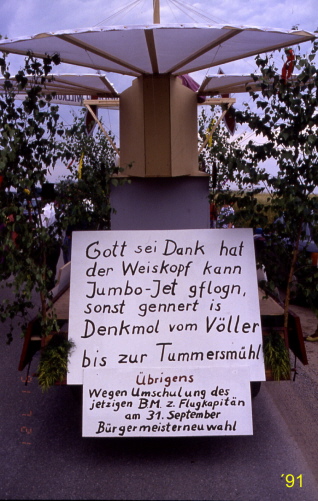 Gott sei Dank hat
der Weiskopf kann
Jumbo-Jet gflogn,
sonst gennert is
Denkmol vom Völler
bis zur Tummersmühl
Übrigens
Wegen Umschulung des
jetzigen B.M. z. Flugkapitän
am 31. September
Bürgermeisterneuwahl
'91